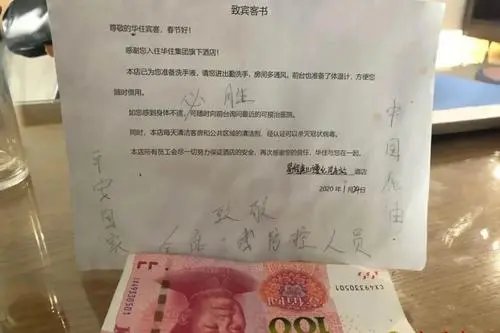 致宾客书
尊敬的华住宾客，春节好！
感谢您入住华住集团旗下酒店！
本店已为您准备洗手液，请您进出勤洗手、房间多通风，前台也准备了体温计，方便您
随时借用。
必胜
如您感到身体不适，可随时向前台询问最近的可接诊医院。
同时，本店每天清洁客房和公共区域的清洁剂，经认证可以杀灭冠状病毒。
本店所有员工会尽一切努力保证酒店的安全，再次感谢您的信任，华住与您在一起。
酒店
2020年1月29日
中国加油
平安国家
致敬
防控人员
CX49330501
CX49330501
100